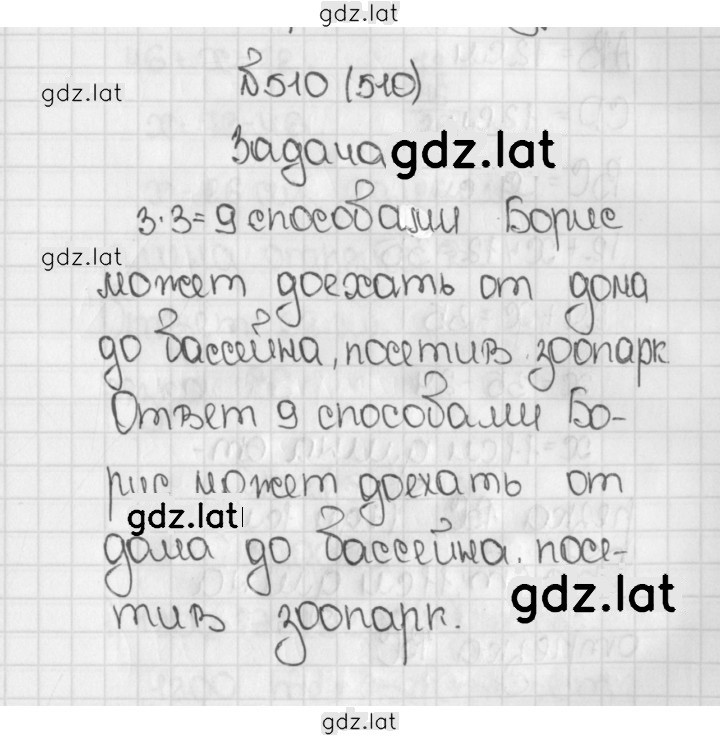 gdz.lat
№510 (510)
gdz.lat
Задача gdz.lat
3·3=9 способами Борис
gdz.lat
может доехать от дома
до бассейна, посетив зоопарк
Ответ 9 способами Бо-
рис может доехать от
gdz.lat
дома до бассейна. посе-
gdz.lat
тив зоопарк.
gdz.lat